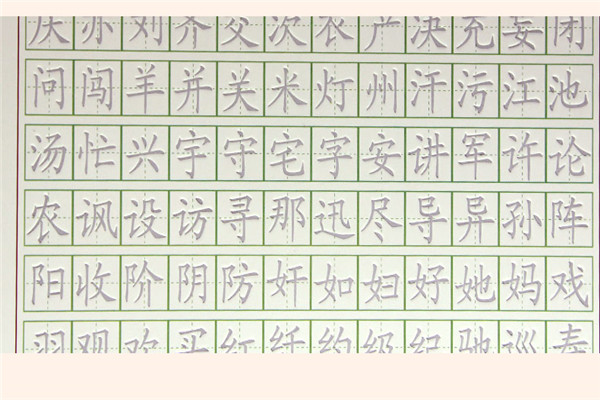 庆亦刘齐交次农产决充妄闭
问闯羊并关米灯州汗污江池
汤忙兴宇守宅字安讲军许论
农讽设访寻那迅尽导异孙阵
阳收阶阴防奸如妇好她妈戏
羽观欢买红纤约级纪驰巡寿